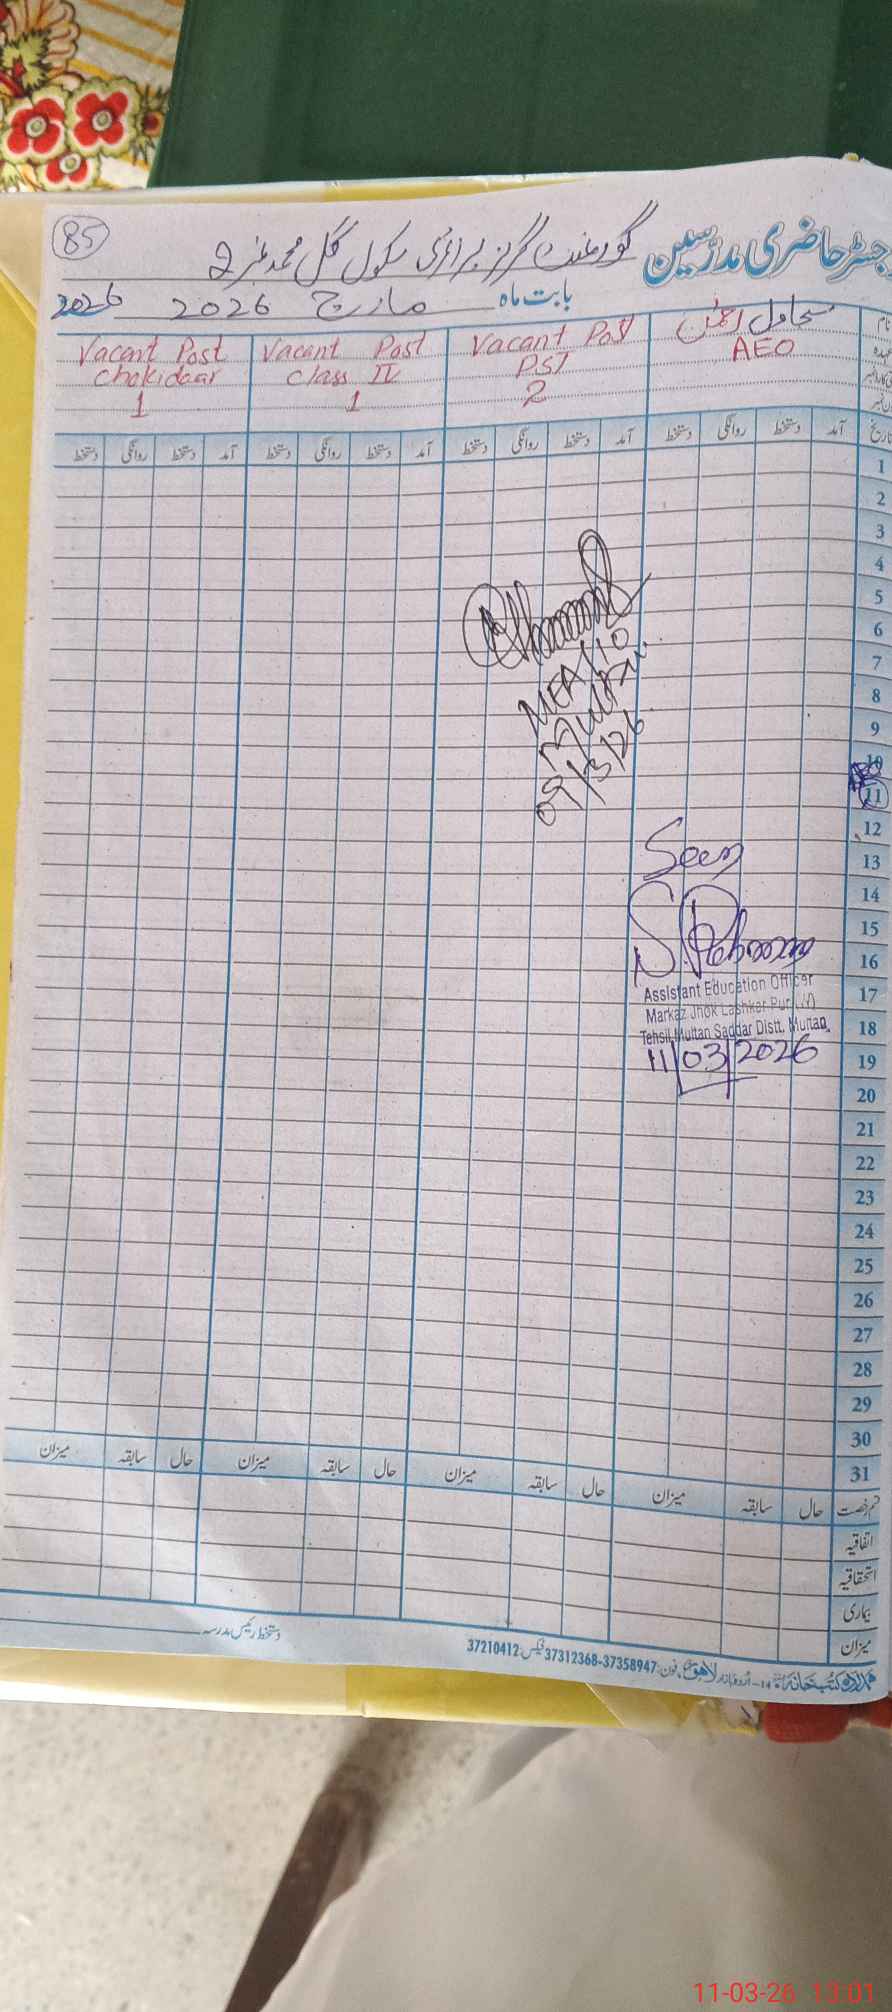 85
رجسٹر حاضری مدرسین گورنمنٹ گرلز پرائمری سکول گل محمد نمبر 2
بابت ماہ مارچ 2026 2026
نام
عہدہ
سجاول
AEO
Vacant Post
PST
2
Vacant Post
Class IV
1
Vacant Post
Chokidaar
1
تاریخ آمد دستخط روانگی دستخط آمد دستخط روانگی دستخط آمد دستخط روانگی دستخط آمد دستخط روانگی دستخط
1
2
3
4
5
6
7
8
9
10
11
12
13
14
15
16
17
18
19
20
21
22
23
24
25
26
27
28
29
30
31
MEA
Multan
09/3/26
Seen
S. Rehman
Assistant Education Officer
Markaz Jhok Lashkar Pur
Tehsil Multan Saddar Distt. Multan
11/03/2026
قسم رخصت حال سابقہ میزان حال سابقہ میزان حال سابقہ میزان حال سابقہ میزان
اتفاقیہ
استحقاقیہ
بیماری
میزان
دستخط رئیس مدرسہ
کتب خانہ 14-اردو بازار لاہور فون: 37358947-37312368 فیکس: 37210412
11-03-26 13:01